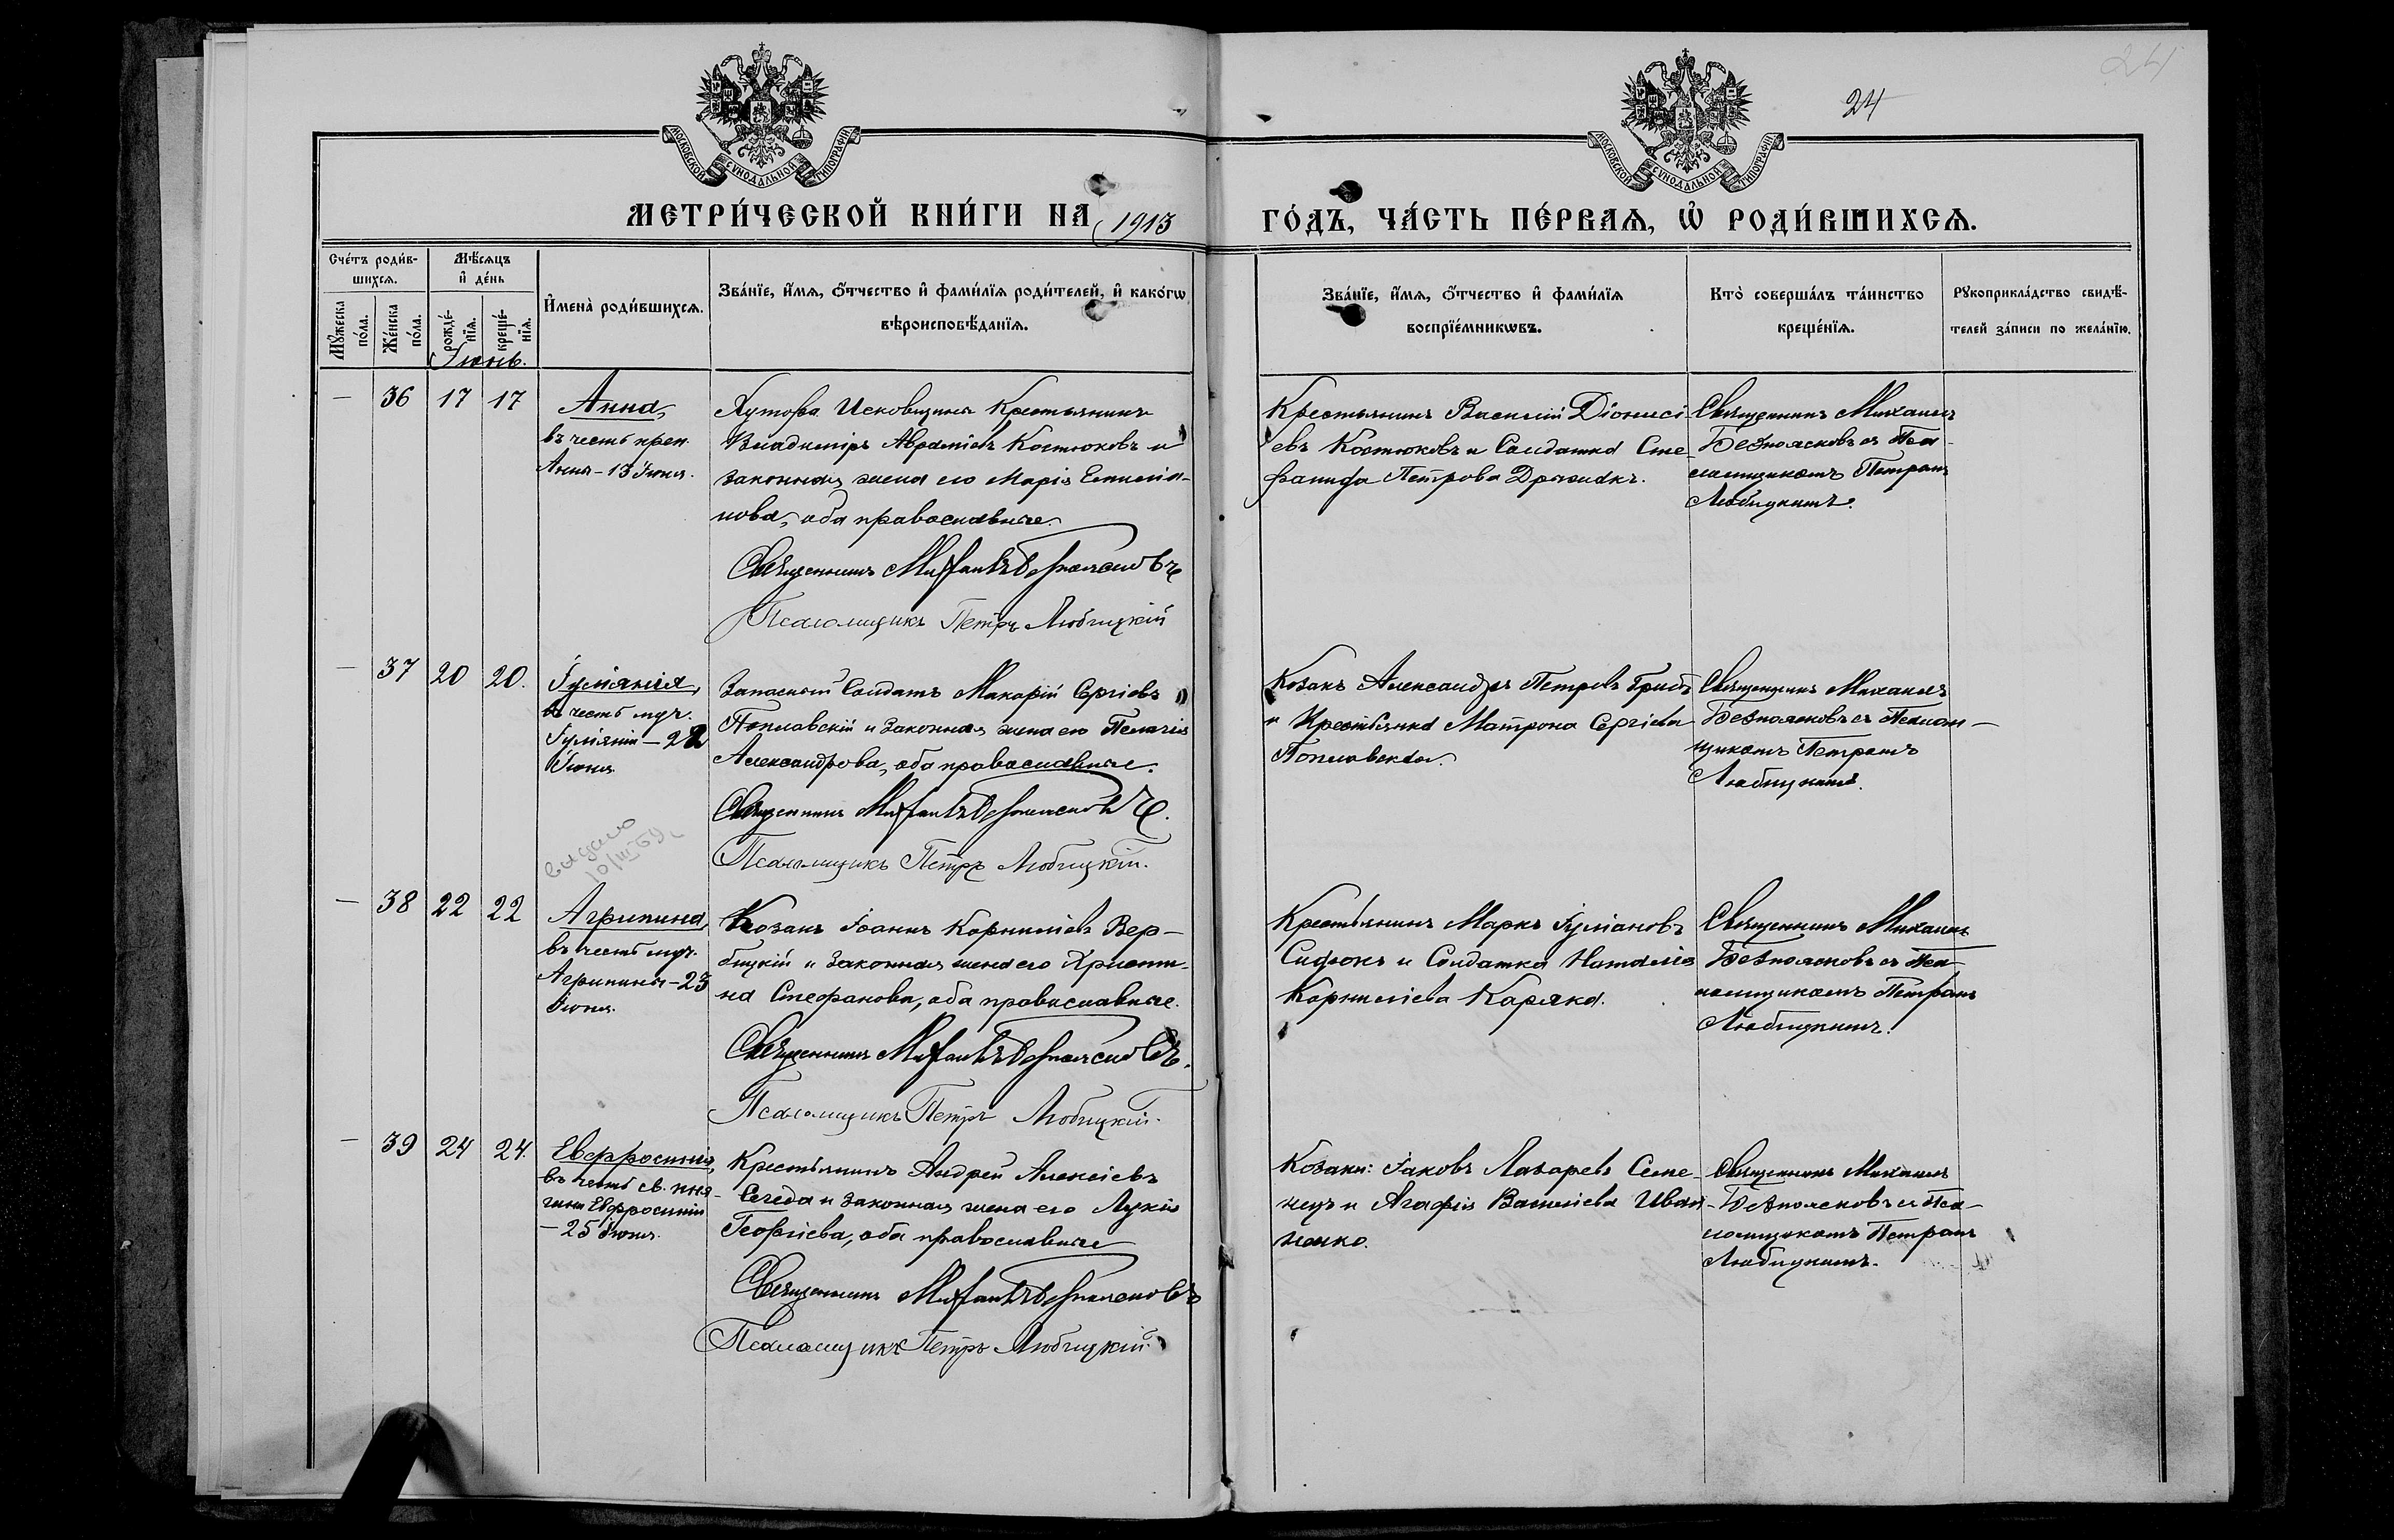 24
24
МОСКОВСКОЙ СУНОДАЛЬНОЙ ТИПОГРАФІИ
МОСКОВСКОЙ СУНОДАЛЬНОЙ ТИПОГРАФІИ
МЕТРИ́ЧЕСКОЙ КНИ́ГИ НА 1913
ГО́ДЪ, ЧА́СТЬ ПЕ́РВАѦ, Ѡ҆ РОДИ́ВШИХСѦ.
Сче́тъ роди́в-
шихсѧ.
Мꙋ́жеска по́ла.
Же́нска по́ла.
Мѣ́сѧцъ
и҆ де́нь
рожде́-нїѧ.
креще́-нїѧ.
И҆мена̀ роди́вшихсѧ.
Зва́нїе, и҆́мѧ, ѻ҆́тчество и҆ фами́лїѧ роди́телей, и҆ како́гѡ
вѣроисповѣ́данїѧ.
Зва́нїе, и҆́мѧ, ѻ҆́тчество и҆ фами́лїѧ
воспрїе́мникѡвъ.
Кто̀ соверша́лъ та́инство
креще́нїѧ.
Рꙋкоприкла́дство свидѣ́-
телей за́писи по жела́нїю.
Іюнь.
— 36 17 17
Анна,
въ честь преп.
Анны – 13 Іюня.
Хутора Крестьянинъ
Владиміръ Авраміевъ Костюковъ и
законная жена его Марія Емиліа-
нова, оба православные.
Священникъ Михаилъ Безпоясковъ
Псаломщикъ Петръ Любицкій
Крестьянинъ Василій Діонисі-
евъ Костюковъ и Солдатка Сте-
фанида Петрова
Священникъ Михаилъ
Безпоясковъ съ Пса-
ломщикомъ Петромъ
Любицкимъ.
— 37 20 20.
Іуліанія,
въ честь муч.
Іуліаніи – 22
Іюня.
Запасный Солдатъ Макарій Сергіевъ
Поплавскій и Законная жена его Пелагія
Александрова, оба православные.
Священникъ Михаилъ Безпоясковъ.
Псаломщикъ Петръ Любицкій.
Козакъ Александръ Петровъ
и Крестьянка Матрона Сергіева
Поплавская.
Священникъ Михаилъ
Безпоясковъ съ Псалом-
щикомъ Петромъ
Любицкимъ.
видано
10/III 59
— 38 22 22
Агрипина,
въ честь муч.
Агрипины – 23
Іюня.
Козакъ Іоаннъ Корниліевъ Вер-
бицкій и Законная жена его Христи-
на Стефанова, оба православные.
Священникъ Михаилъ Безпоясковъ.
Псаломщикъ Петръ Любицкій.
Крестьянинъ Маркъ Іуліановъ
Сидюкъ и Солдатка Наталія
Корниліева Каряка.
Священникъ Михаилъ
Безпоясковъ съ Пса-
ломщикомъ Петромъ
Любицкимъ.
— 39 24 24.
Евфросинія,
въ честь св. кня-
гини Евфросиніи
– 25 Іюня.
Крестьянинъ Андрей Алексіевъ
Сегеда и Законная жена его Лукія
Георгіева, оба православные
Священникъ Михаилъ Безпоясковъ
Псаломщикъ Петръ Любицкій
Козаки: Іаковъ Лазаревъ Семе-
нецъ и Агафія Василіева Иван-
ченко.
Священникъ Михаилъ
Безпоясковъ съ Пса-
ломщикомъ Петромъ
Любицкимъ.